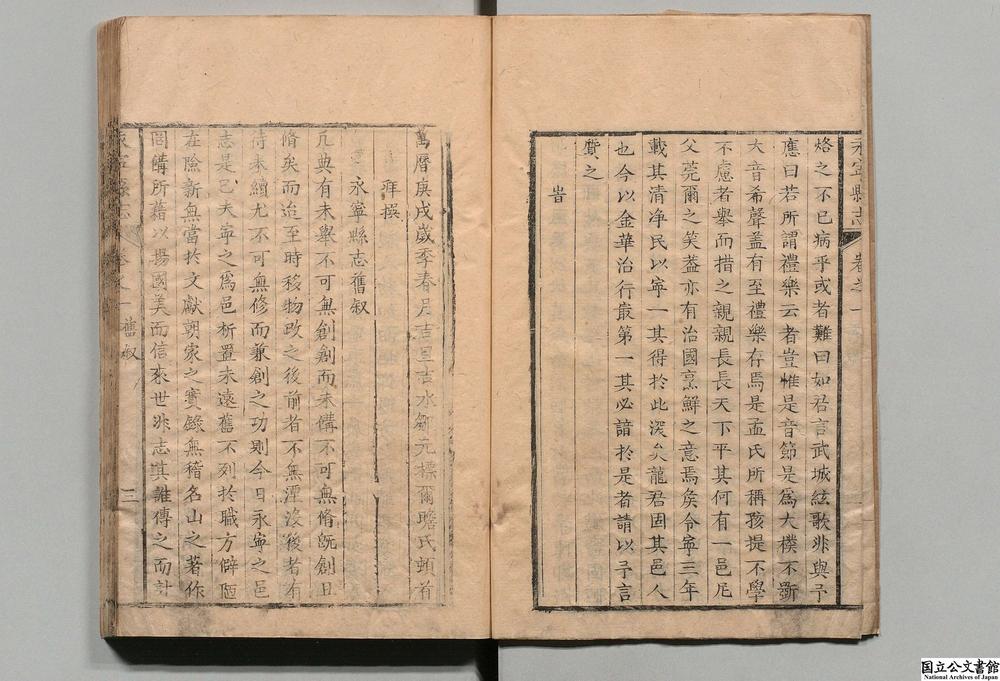 永寧縣志 卷之一
烙之不已病乎或者難曰如君言武城絃歌非與予
應曰若所謂禮樂云者豈惟是音節是爲大樸不斲
大音希聲葢有至禮樂存焉是孟氏所稱孩提不學
不慮者舉而措之親親長長天下平其何有一邑尼
父莞爾之笑葢亦有治國烹鮮之意焉矦令寧三年
載其清淨民以寧一其得於此深矣龍君固其邑人
也今以金華治行㝡第一其必諳於是者請以予言
質之
旹
萬曆庚戌歲季春月吉旦吉水鄒元標爾瞻氏頓首
拜撰
永寧縣志舊叙
凡典有未舉不可無創創而未備不可無脩旣創且
脩矣而迨至時移物改之後前者不無湮沒後者有
待未續尤不可無修而兼創之功則今日永寧之邑
志是已夫寧之爲邑析置未遠舊不列於職方僻陋
在險新無當於文獻朝家之實錄無稽名山之著作
罔備所藉以揚國美而信來世非志其誰傳之而計
永寧縣志 卷之一 舊叙 三
国立公文書館
National Archives of Japan